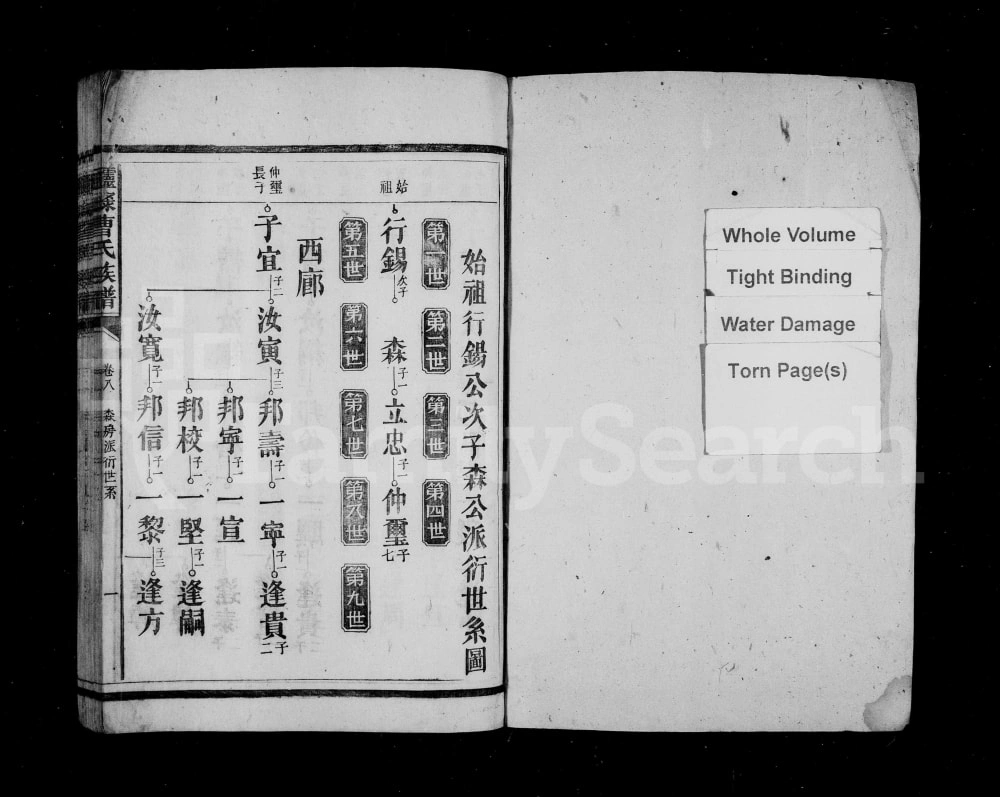 始祖行錫公次子森公派衍世系圖
第一世
第二世
第三世
第四世
始祖
行錫 次子
森 子一
立忠 子一
仲璽 子七
第五世
第六世
第七世
第八世
第九世
西廊
仲璽長子
子宜 子二
汝寅 子三
邦壽 子一
一寧 子一
逢貴 子二
邦寧 子一
一宣
邦校 子一
一堅 子一
逢嗣
汝寬 子一
邦信 子一
一黎 子三
逢方
曹氏族譜
卷八
森房派衍世系
一
Whole Volume
Tight Binding
Water Damage
Torn Page(s)
FamilySearch